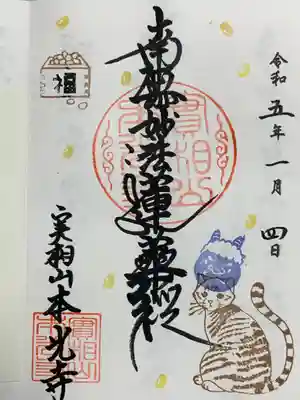 令和五年一月四日
南無妙法蓮華経
福
実相山本光寺